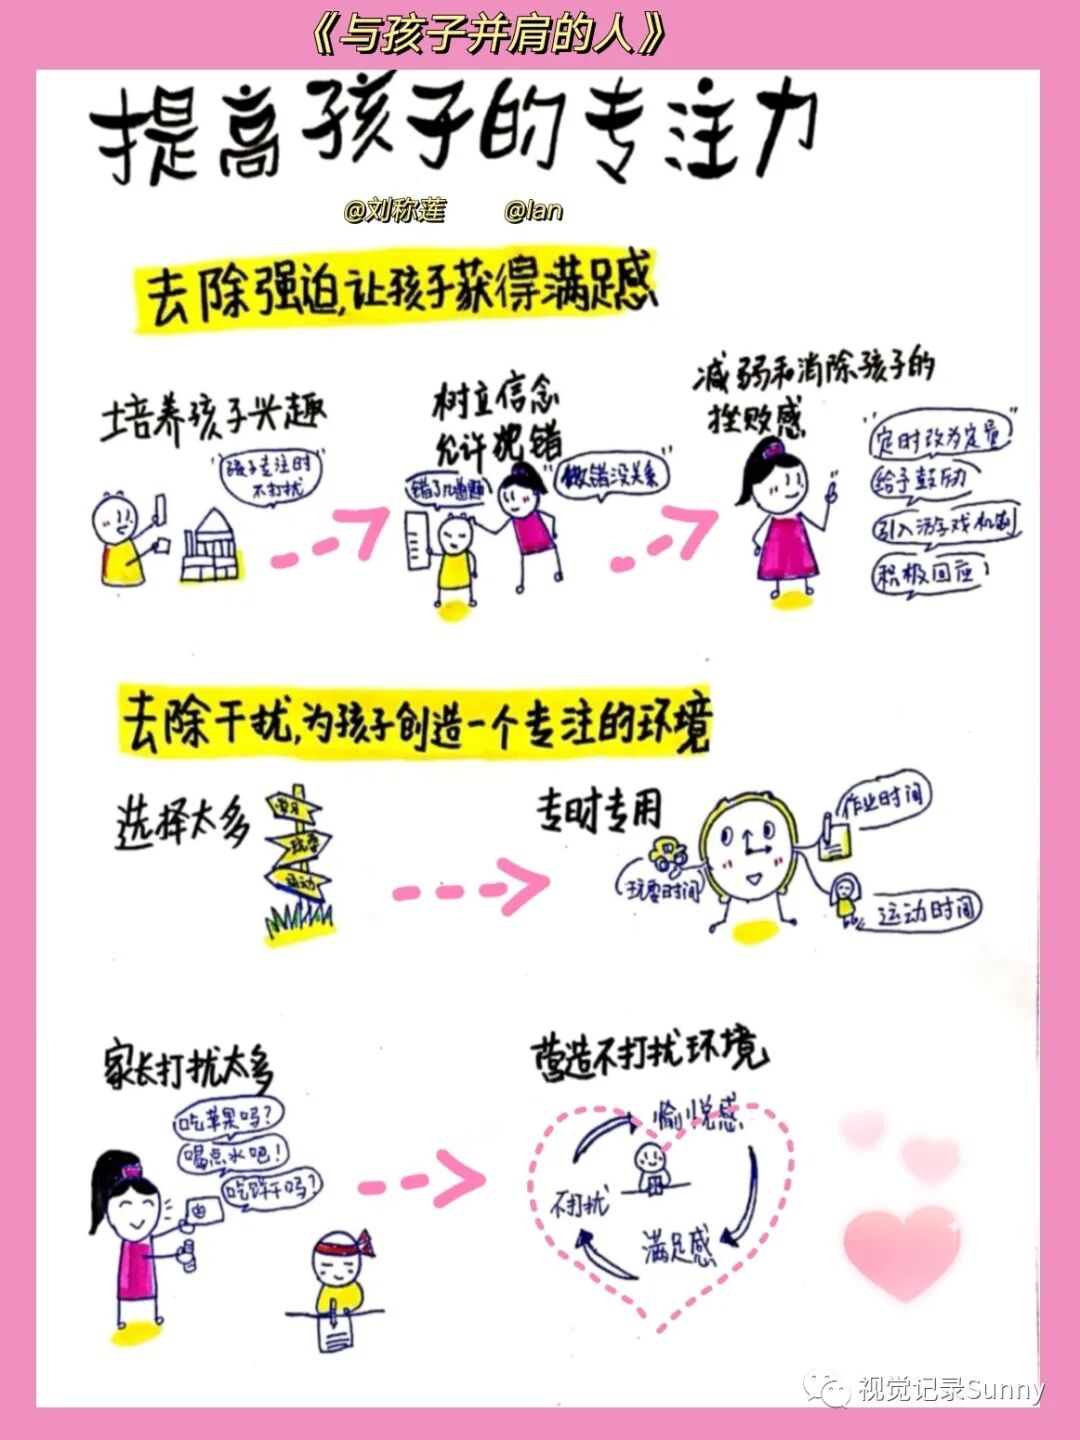 《与孩子并肩的人》
提高孩子的专注力
@刘称莲 @lan
去除强迫,让孩子获得满足感
培养孩子兴趣
"孩子专注时
不打扰"
树立信念
允许犯错
"做错没关系"
减弱和消除孩子的
挫败感
"定时改为定量"
给予鼓励
引入游戏机制
积极回应
去除干扰,为孩子创造一个专注的环境
选择太多
学习
玩耍
运动
专时专用
作业时间
玩耍时间
运动时间
家长打扰太多
吃苹果吗?
喝点水吧!
吃饼干吗?
营造不打扰环境
愉悦感
不打扰
满足感
视觉记录Sunny